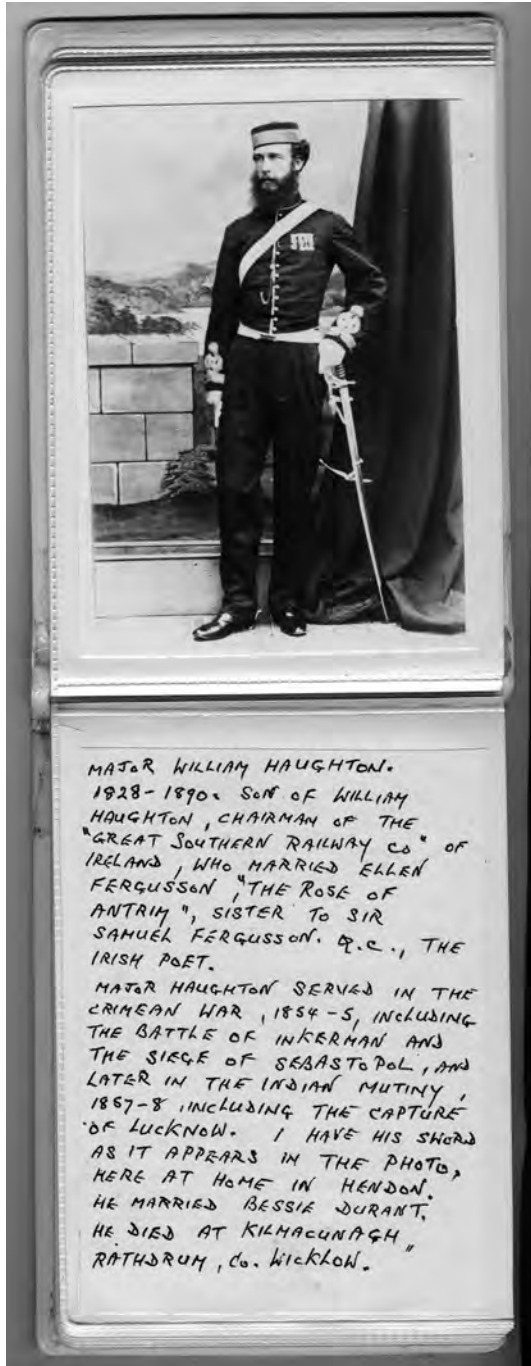 MAJOR WILLIAM HAUGHTON.
1828-1890. SON OF WILLIAM
HAUGHTON, CHAIRMAN OF THE
"GREAT SOUTHERN RAILWAY CO" OF
IRELAND, WHO MARRIED ELLEN
FERGUSSON, "THE ROSE OF
ANTRIM", SISTER TO SIR
SAMUEL FERGUSSON. Q.C., THE
IRISH POET.
MAJOR HAUGHTON SERVED IN THE
CRIMEAN WAR, 1854-5, INCLUDING
THE BATTLE OF INKERMAN AND
THE SIEGE OF SEBASTOPOL, AND
LATER IN THE INDIAN MUTINY,
1857-8, INCLUDING THE CAPTURE
OF LUCKNOW. I HAVE HIS SWORD
AS IT APPEARS IN THE PHOTO,
HERE AT HOME IN HENDON.
HE MARRIED BESSIE DURANT.
HE DIED AT KILMACUNAGH"
RATHDRUM, Co. WICKLOW.